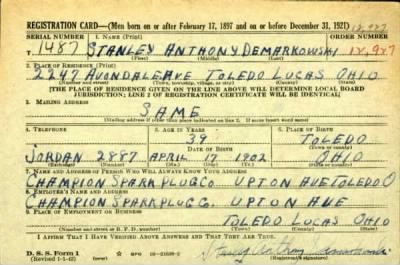 REGISTRATION CARD—(Men born on or after February 17, 1897 and on or before December 31, 1921)
SERIAL NUMBER 1. NAME (Print) ORDER NUMBER
1487 STANLEY ANTHONY DEMARKOWSKI 12,927
(First) (Middle) (Last)
2. PLACE OF RESIDENCE (Print)
2247 AVONDALE AVE TOLEDO LUCAS OHIO
(Number and street) (Town, township, village, or city) (County) (State)
[THE PLACE OF RESIDENCE GIVEN ON THE LINE ABOVE WILL DETERMINE LOCAL BOARD
JURISDICTION; LINE 2 OF REGISTRATION CERTIFICATE WILL BE IDENTICAL]
3. MAILING ADDRESS
SAME
[Mailing address if other than place indicated on line 2. If same insert word same]
4. TELEPHONE 5. AGE IN YEARS 6. PLACE OF BIRTH
39 TOLEDO
DATE OF BIRTH
JORDAN 2887 APRIL 17 1902 OHIO
7. NAME AND ADDRESS OF PERSON WHO WILL ALWAYS KNOW YOUR ADDRESS
CHAMPION SPARK PLUG Co. UPTON AVE TOLEDO O
8. EMPLOYER'S NAME AND ADDRESS
CHAMPION SPARK PLUG Co. UPTON AVE
9. PLACE OF EMPLOYMENT OR BUSINESS
TOLEDO LUCAS OHIO
(Number and street or R. F. D. number) (Town) (County) (State)
I AFFIRM THAT I HAVE VERIFIED ABOVE ANSWERS AND THAT THEY ARE TRUE.
D. S. S. Form 1
(Revised 1-1-42) (over)
Stanley Anthony Demarkowski